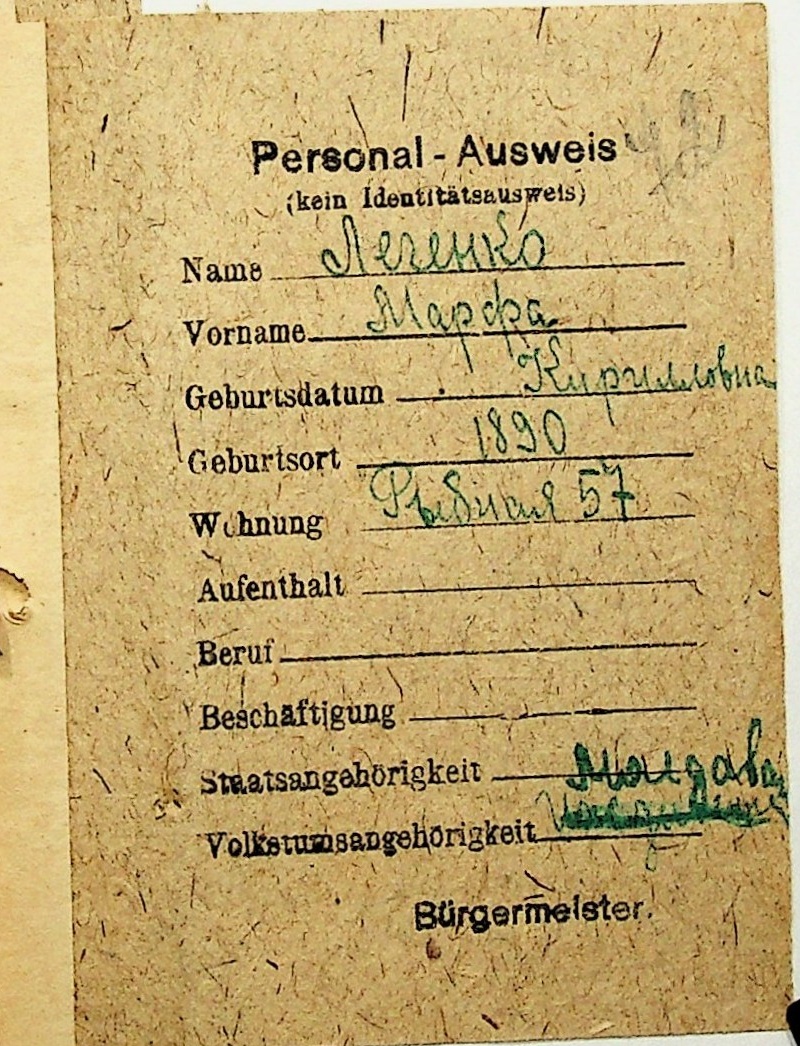 Personal - Ausweis
(kein Identitätsausweis)
Name Легенко
Vorname Марфа
Geburtsdatum Кирилловна
Geburtsort 1890
Wohnung Рыбная 57
Aufenthalt
Beruf
Beschäftigung
Staatsangehörigkeit
Volkstumsangehörigkeit
Bürgermeister.